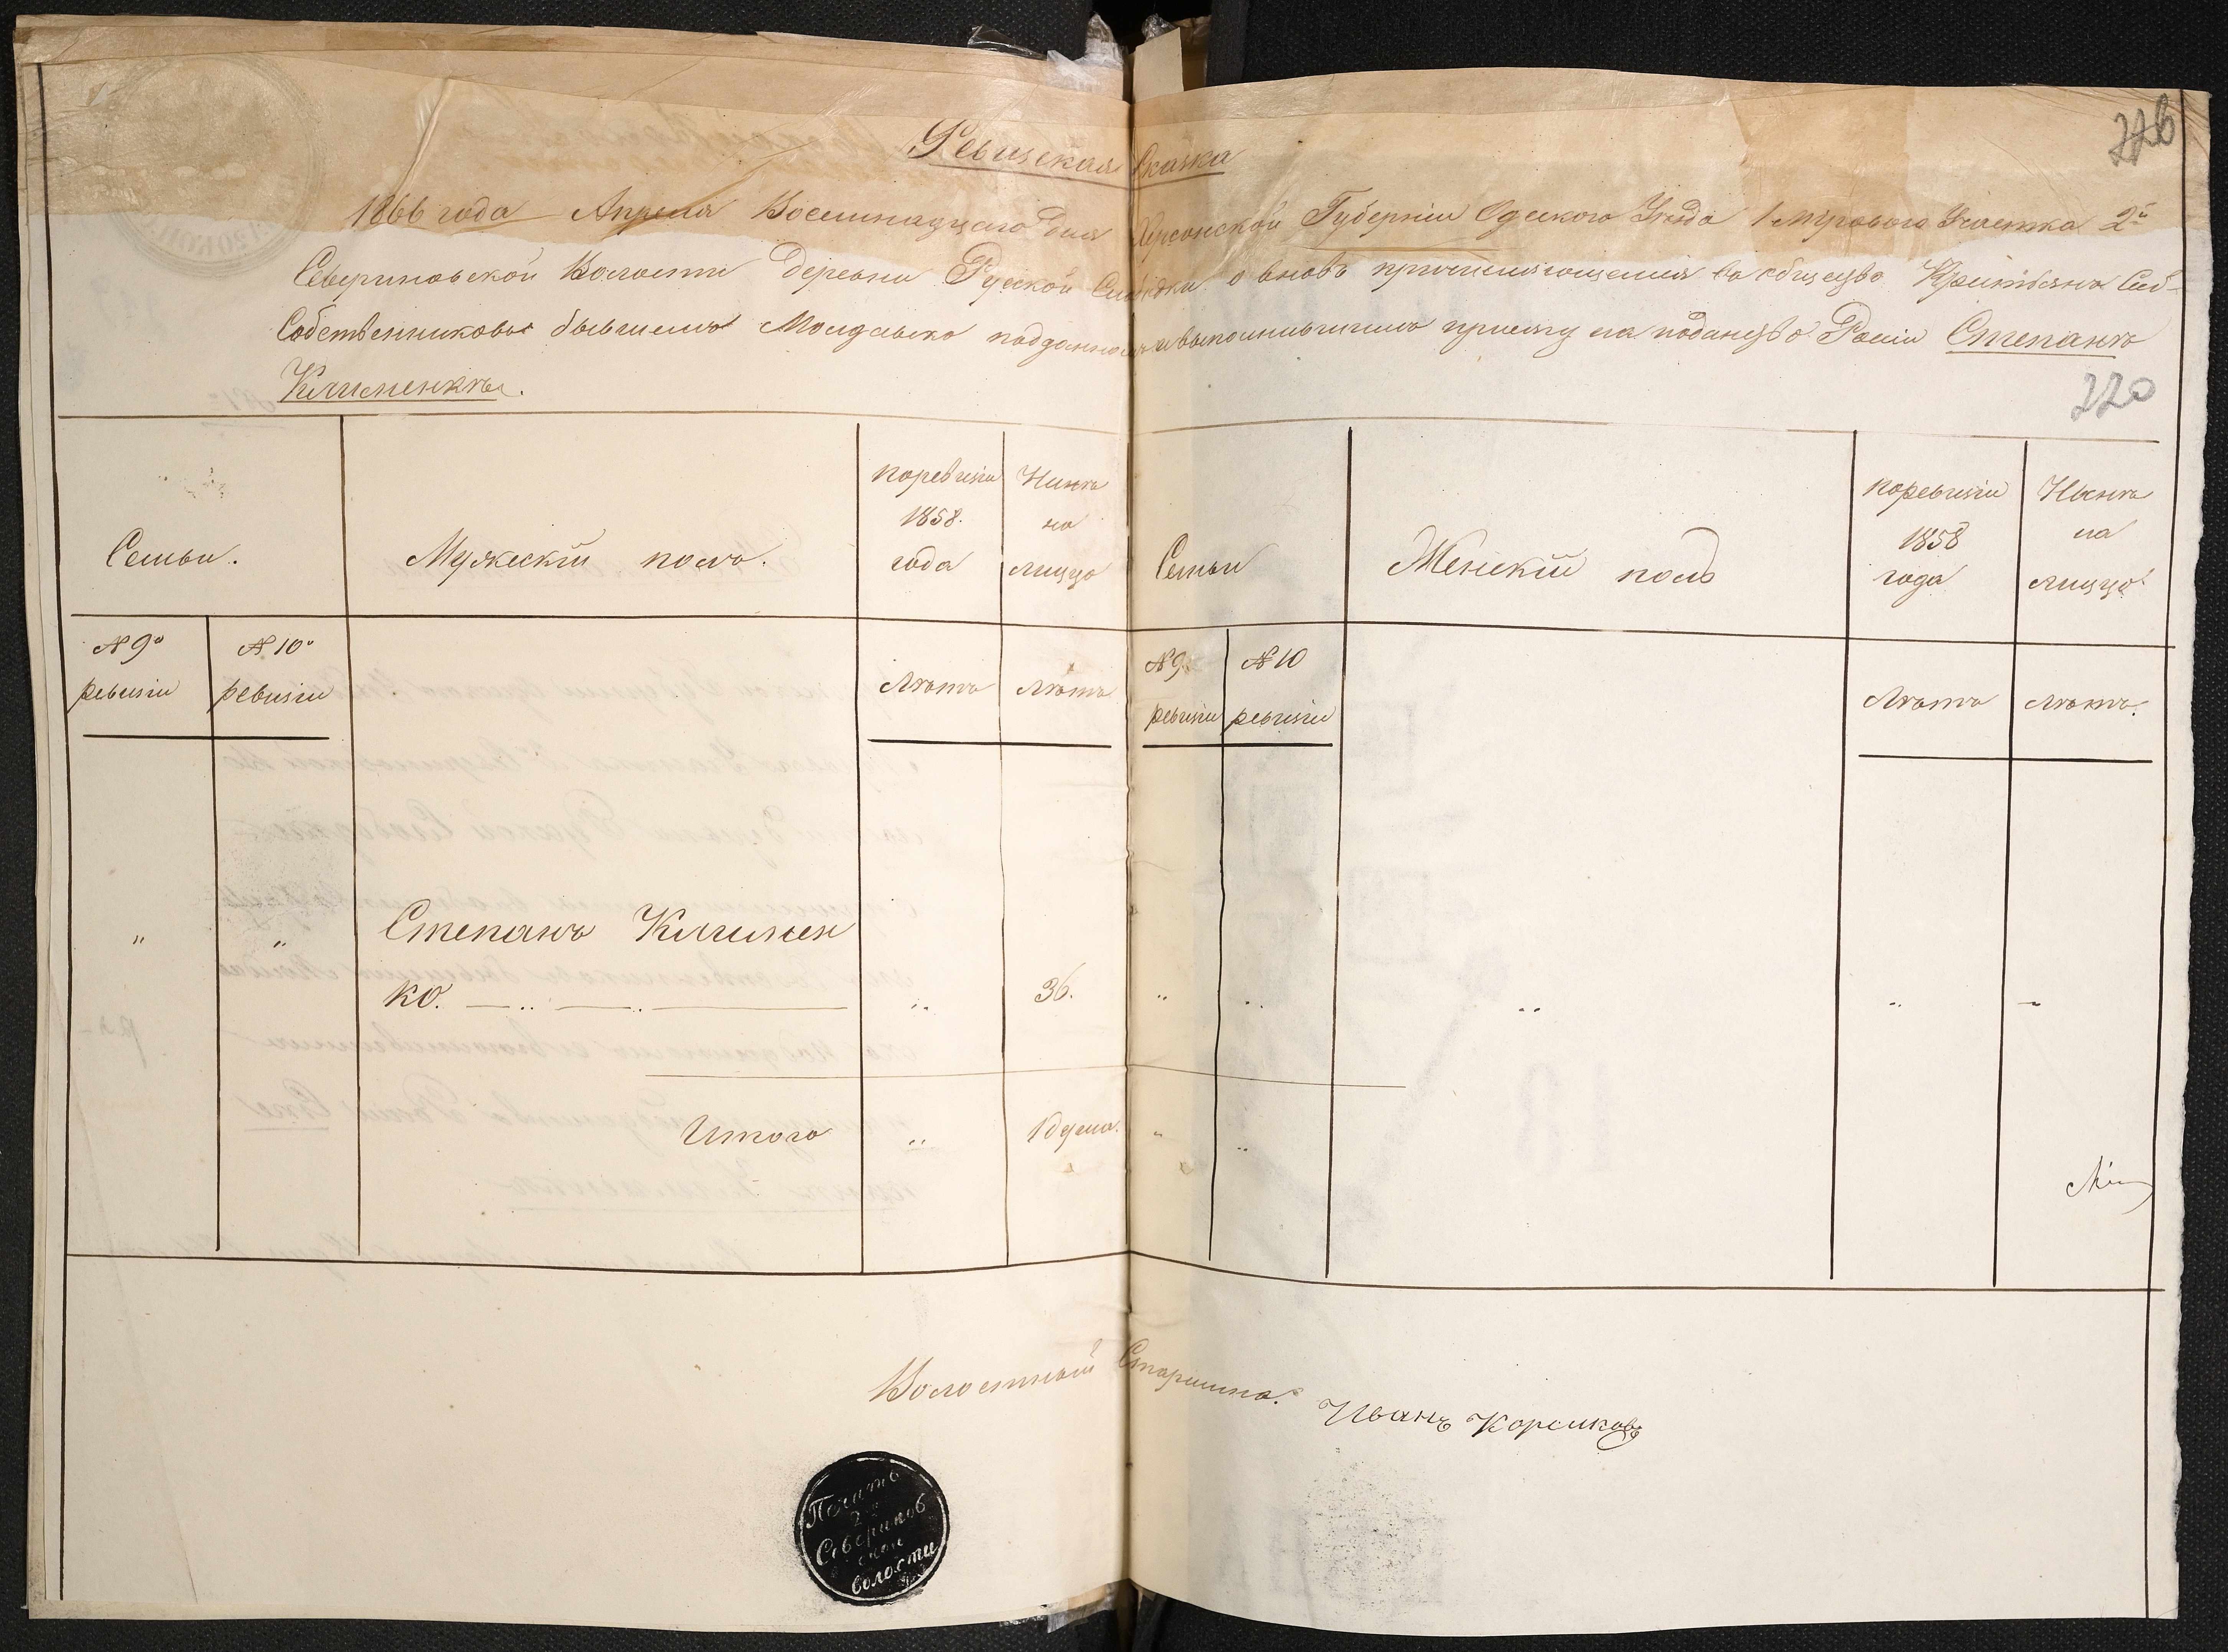 226
Ревизская Сказка
1866 года Апреля Восемнадцаго дня Херсонской Губерніи Одескаго Уезда 1 Мироваго Участка 2й
Севериновской Волости деревни Русской Слободки о вновь причисляющемся во общество Крестьянъ Соб-
Собственниковъ бывшемъ Молдавско подданномъ и выполнившимъ присягу на поданство Росіи Степанъ
Клименкѣ.
220
Семьи. Мужескій полъ. По ревизіи 1858. года Нинѣ на лиццо Семьи Женскій полъ По ревизіи 1858 года Нынѣ на лиццо
№ 9й ревизіи № 10й ревизіи Лѣтъ Лѣтъ № 9. ревизіи № 10 ревизіи Лѣтъ Лѣтъ.
" " Степанъ Климен
ко. " 36. " " " " "
Итого " 1 душа. " "
Волостный Старшина: Иванъ Корсиковъ
Печать
2й
Севериновъ
ской
волости